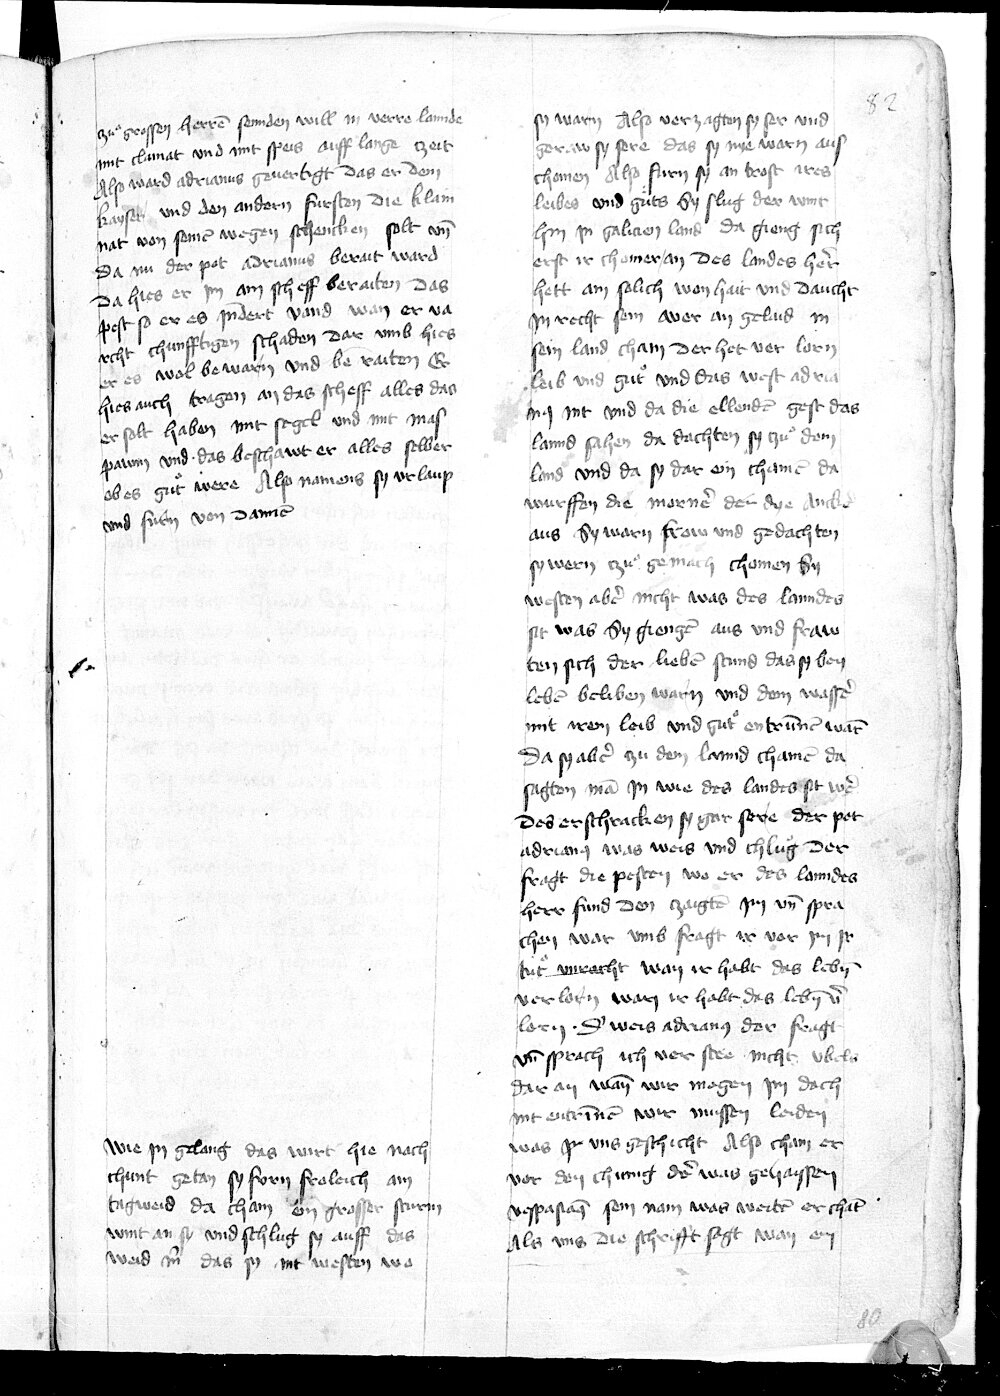 82
czuͦ grossen herrē sennden will in verre lannde
mit clainat vnd mit speis auff lange czeit
Also ward adrianus geuertigt das er dem
kayser vnd den andern fursten die klain
nat von seinē wegen schencken solt vn̄
da nu der pot adrianus berait ward
da hies er im ain scheff beraiten das
pest so er es indert vand wan er va
rcht chunfftigen schaden dar vmb hies
er es wol bewarn vnd be raiten Er
hies auch tragen an das scheff alles das
er solt haben mit segel vnd mit mas
pawm vnd das beschawt er alles selber
ob es guͦt were Also namens sy vrlaup
vnd furn von dannē
wie in gelang das wirt hie nach
chunt getan sy forn froleich ain
tagweid da cham ein grosser sturm
wint an sy vnd schlug sy auff das
weid m̄ das sy nit westen wo
sy warn Also verzagten sy ser vnd
geraw sy sere das sy nye warn aus
chomen Also furn sy an trost ires
leibes vnd guͦts Sy slug der wint
hin in galicien land da gieng sich
erst ir chomer an des landes her̄
hett ain solich won hait vnd daucht
in recht sein wer an gelaid in
sein land cham der het ver lorn
leib vnd guͦt vnd das west adria
nꝯ nit vnd da die ellendē gest das
lannd sahen da dachten sy czuͦ dem
land vnd da sy dar ein chamē da
wurffen die mornēr der dye Ancker
aus Sy warn frow vnd gedachten
sy wern czuͦ gemach chomen Sy
westen aber̄ nicht was des lanndes
sit was Sy giengē aus vnd fraw
ten sich der liebē stund das sy bey
lebē beliben warn vnd dem wasser̄
mit irem leib vnd guͦt entrūnē warn̄
Da sy aber̄ zu dem lannd chamē da
sagten mā in wie des landes sit wer̄
Des erschracken sy gar sere der pot
adrianꝯ was weis vnd chluͦg der
fragt die pesten wo er des lanndes
herr fund den czaigtē im vn̄ spra
chen war vmb fragt ir vor im ir
tuͦt vnrecht wan ir habt das lebn̄
verlorn wan ir habt das lebn̄ v̄
lorn · D' weis adrianꝯ der fragt
vn̄ sprach ich ver stee nicht vbels
dar an wan̄ wir mogen im doch
nit entrīnē wir mussen leiden
was ir vns geschicht Also cham er
vor den chunig der̄ was gehaissen
vespasian̄ sein nam was weitē erchāt
Als vns die schrifft sagt wan ein
80